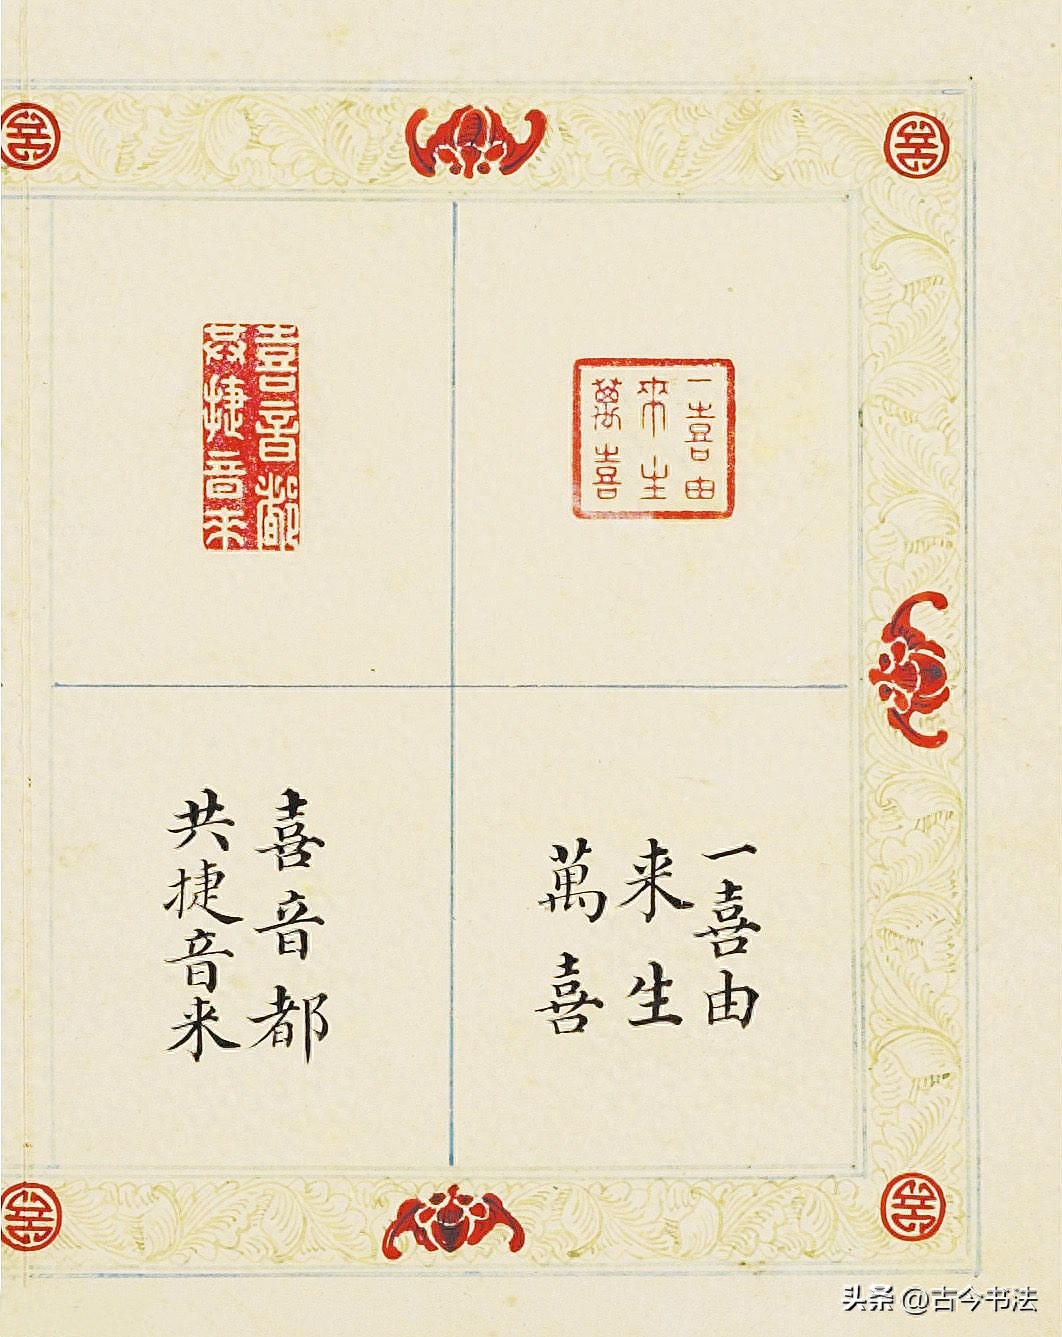 一喜由
來生
萬喜
喜音都
共捷音來
一喜由
来生
萬喜
喜音都
共捷音来
头条 @古今书法